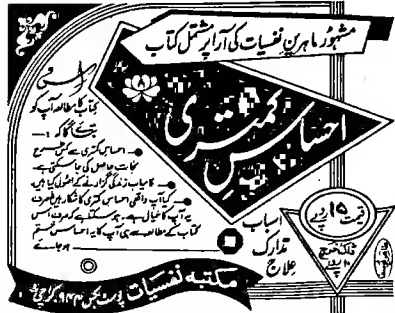 مشہور ماہرینِ نفسیات کی آرا پر مشتمل کتاب
احساسِ کمتری
کتاب کا مطالعہ آپ کو
بتائے گا کہ :—
— احساسِ کمتری سے کس طرح
نجات حاصل کی جا سکتی ہے۔
— کامیاب زندگی گزارنے کے اصول کیا ہیں۔
— کیا آپ واقعی احساسِ کمتری کا شکار ہیں یا صرف
یہ آپ کا خیال ہے۔ ہو سکتا ہے کہ صرف اس
کتاب کے مطالعہ سے ہی آپ کا یہ احساس ختم
ہو جائے
اسباب
تدارک
علاج
قیمت ۱۵ روپے
ڈاک خرچ
روپے
مکتبہ نفسیات پوسٹ بکس نمبر ۹۴۴ کراچی